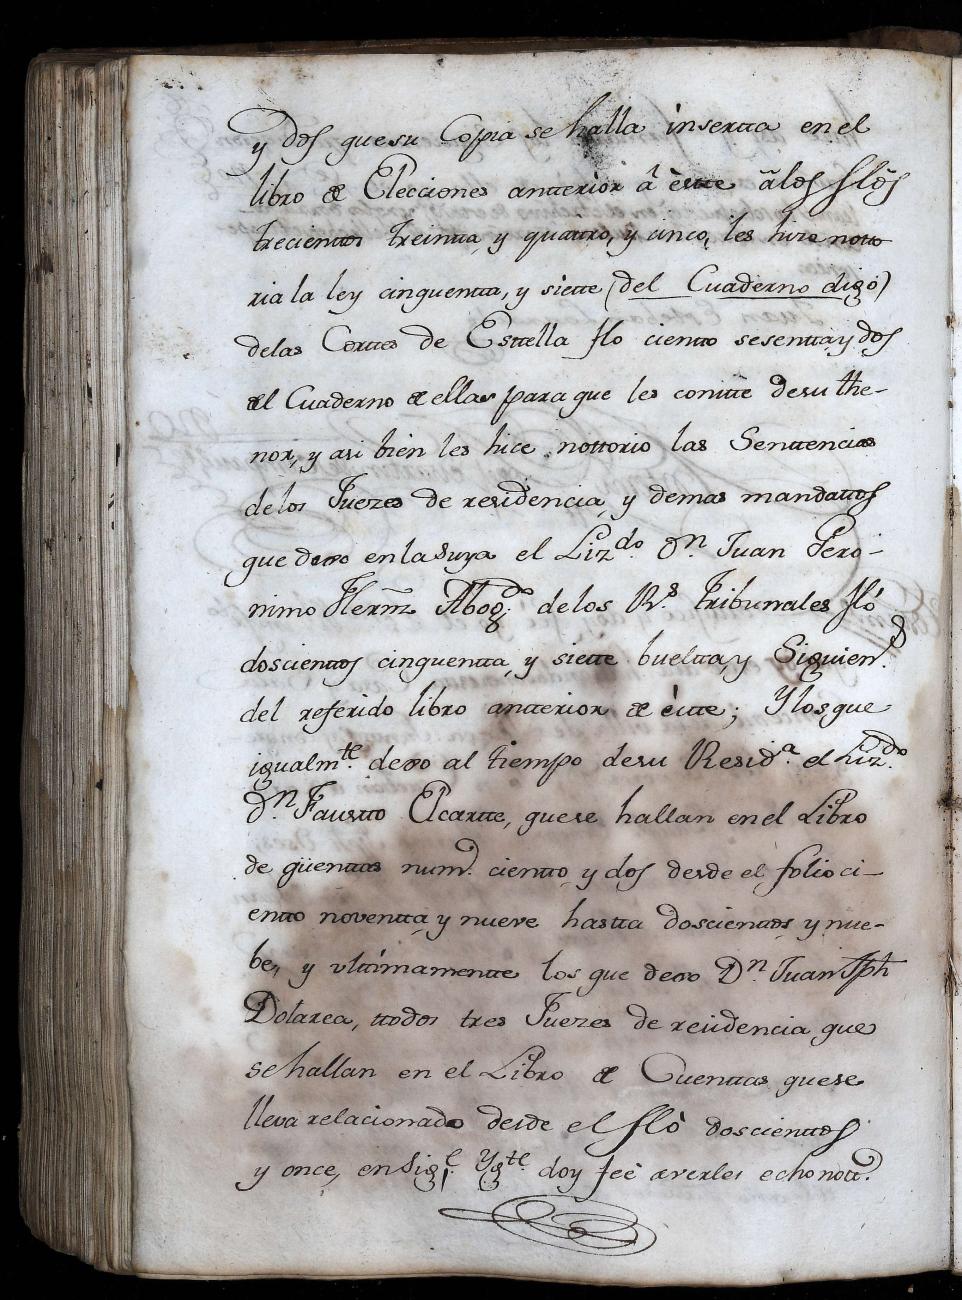 y dos que su Copia se halla inserta en el
libro de Elecciones antterior â èstte â los flôs
trecientos treintta y quattro, y cinco, les hize notto
ria la ley cinquentta, y siette (del Cuaderno digó)
delas Corttes de Esttella flo ciento sesentta y dos
del Cuaderno de ellas para que les constte desu the-
nor, y asi bien les hice nottorio las Senttencias
delos Juezes de residencia y demas mandattos
que dexo en la suya el Lizdo. Dn. Juan Gero-
nimo Herrnz Abogdo. delos Rs. Tribunales fló
doscientos cinquentta y siette bueltta, y Siguien.s
del referido libro antterior de éstte; Y los que
igualmte. dexo al tiempo desu Resida. el Lizdo.
Dn. Faustto Elcartte, que se hallan en el Libro
de qüenttas numo. cientto y dos desde el folio ci-
entto noventta y nueve hastta doscienttos y nue-
be, y vlttimamentte los que dexo Dn. Juan Jph
Dolarea, ttodos tres Juezes de residencia que
se hallan en el Libro de Cuenttas que se
lleva relacionado desde el flò doscienttos
y once, en sigl. Ygte. doy feè averles echo nota.